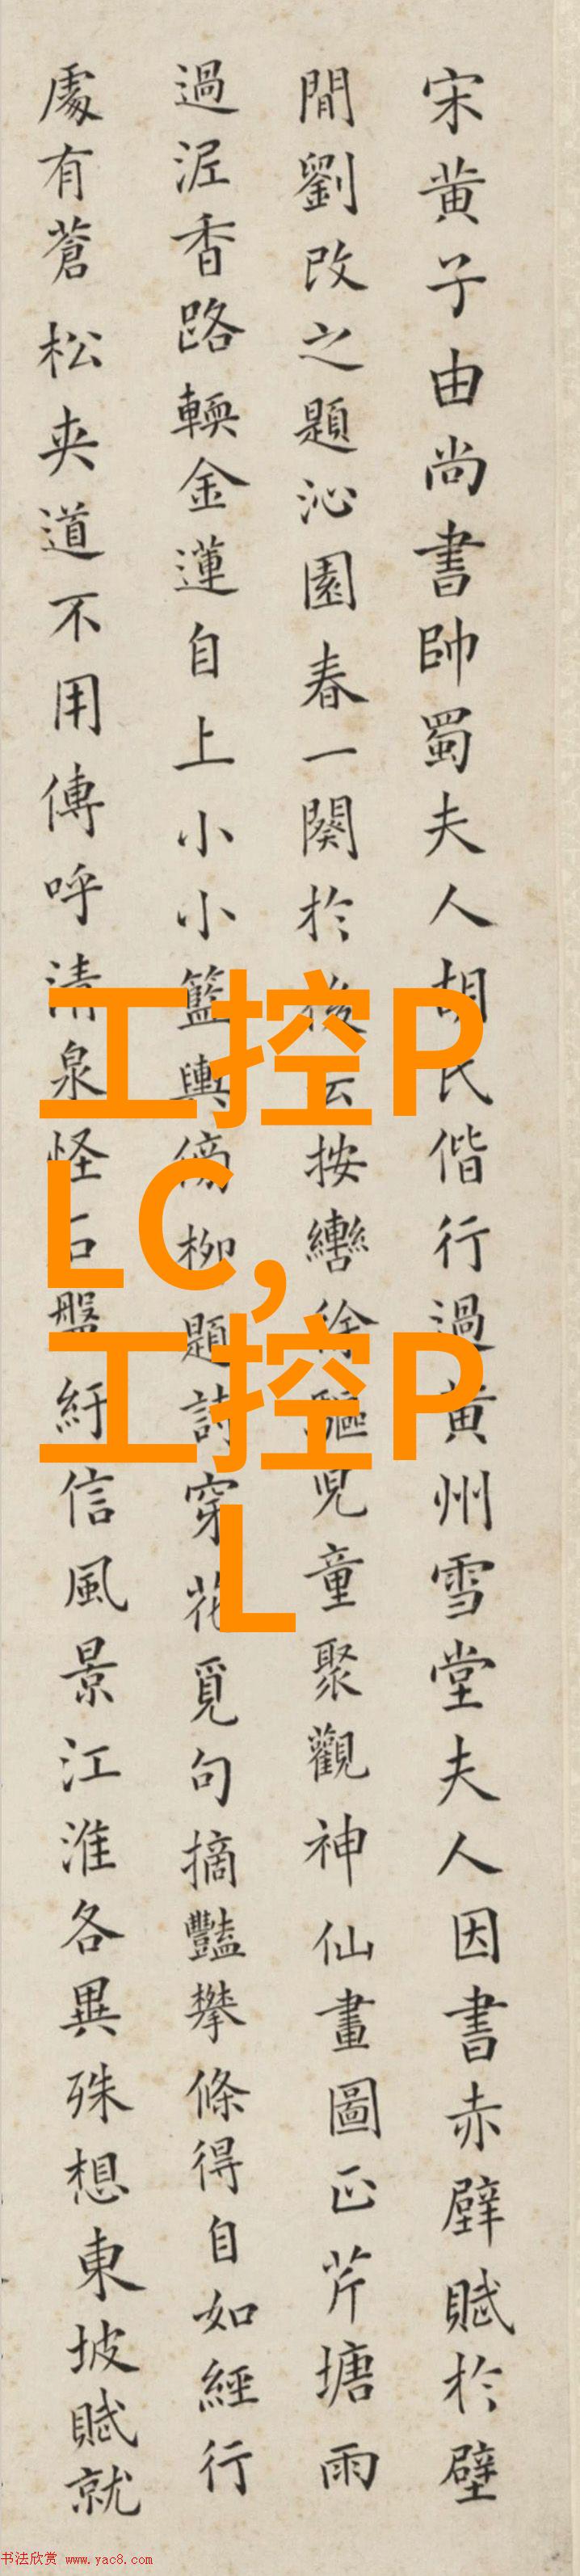 宋黄子由尚書帥蜀夫人胡氏偕行過黄州雪堂夫人因書赤壁賦於壁
間劉改之題沁園春一闋於後云按轡徐驅兒童聚觀神仙畫圖正芹塘雨
過泥香路輭金蓮自上小小籃輿傍柳題詩穿花覓句摘豔攀條得自如經行
處有蒼松夹道不用傳呼清泉怪石盤紆信風景江淮各異殊想東坡賦就
工控P
LC,
工控P
L
书法欣赏 www.yac8.com